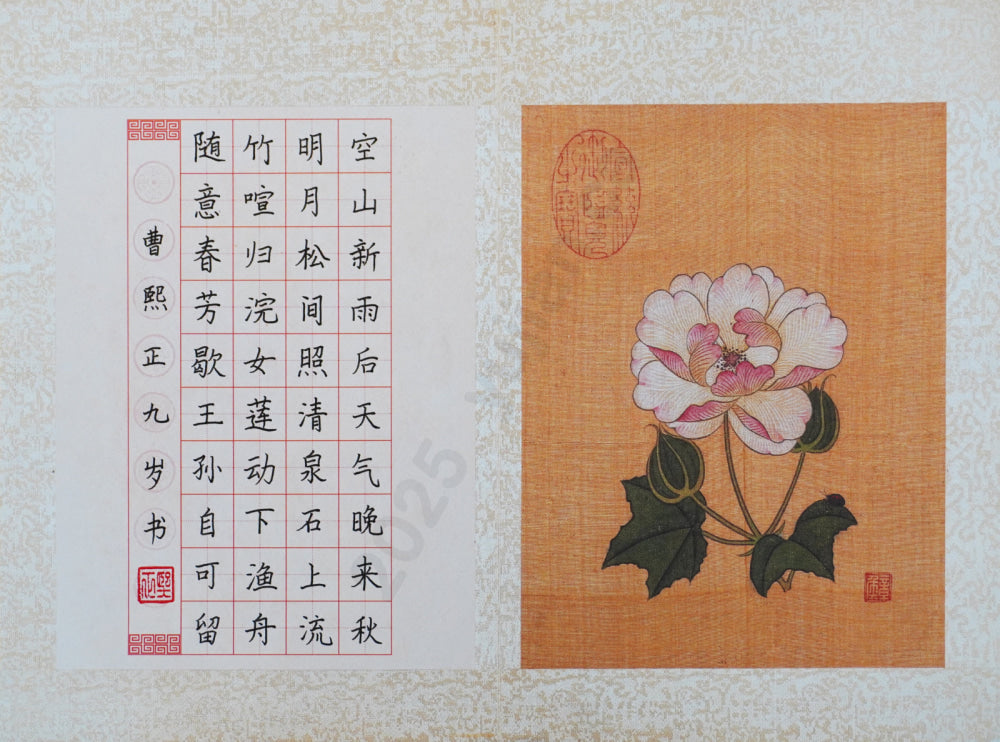 空山新雨后天气晚来秋
明月松间照清泉石上流
竹喧归浣女莲动下渔舟
随意春芳歇王孙自可留
曹熙正九岁书
2025